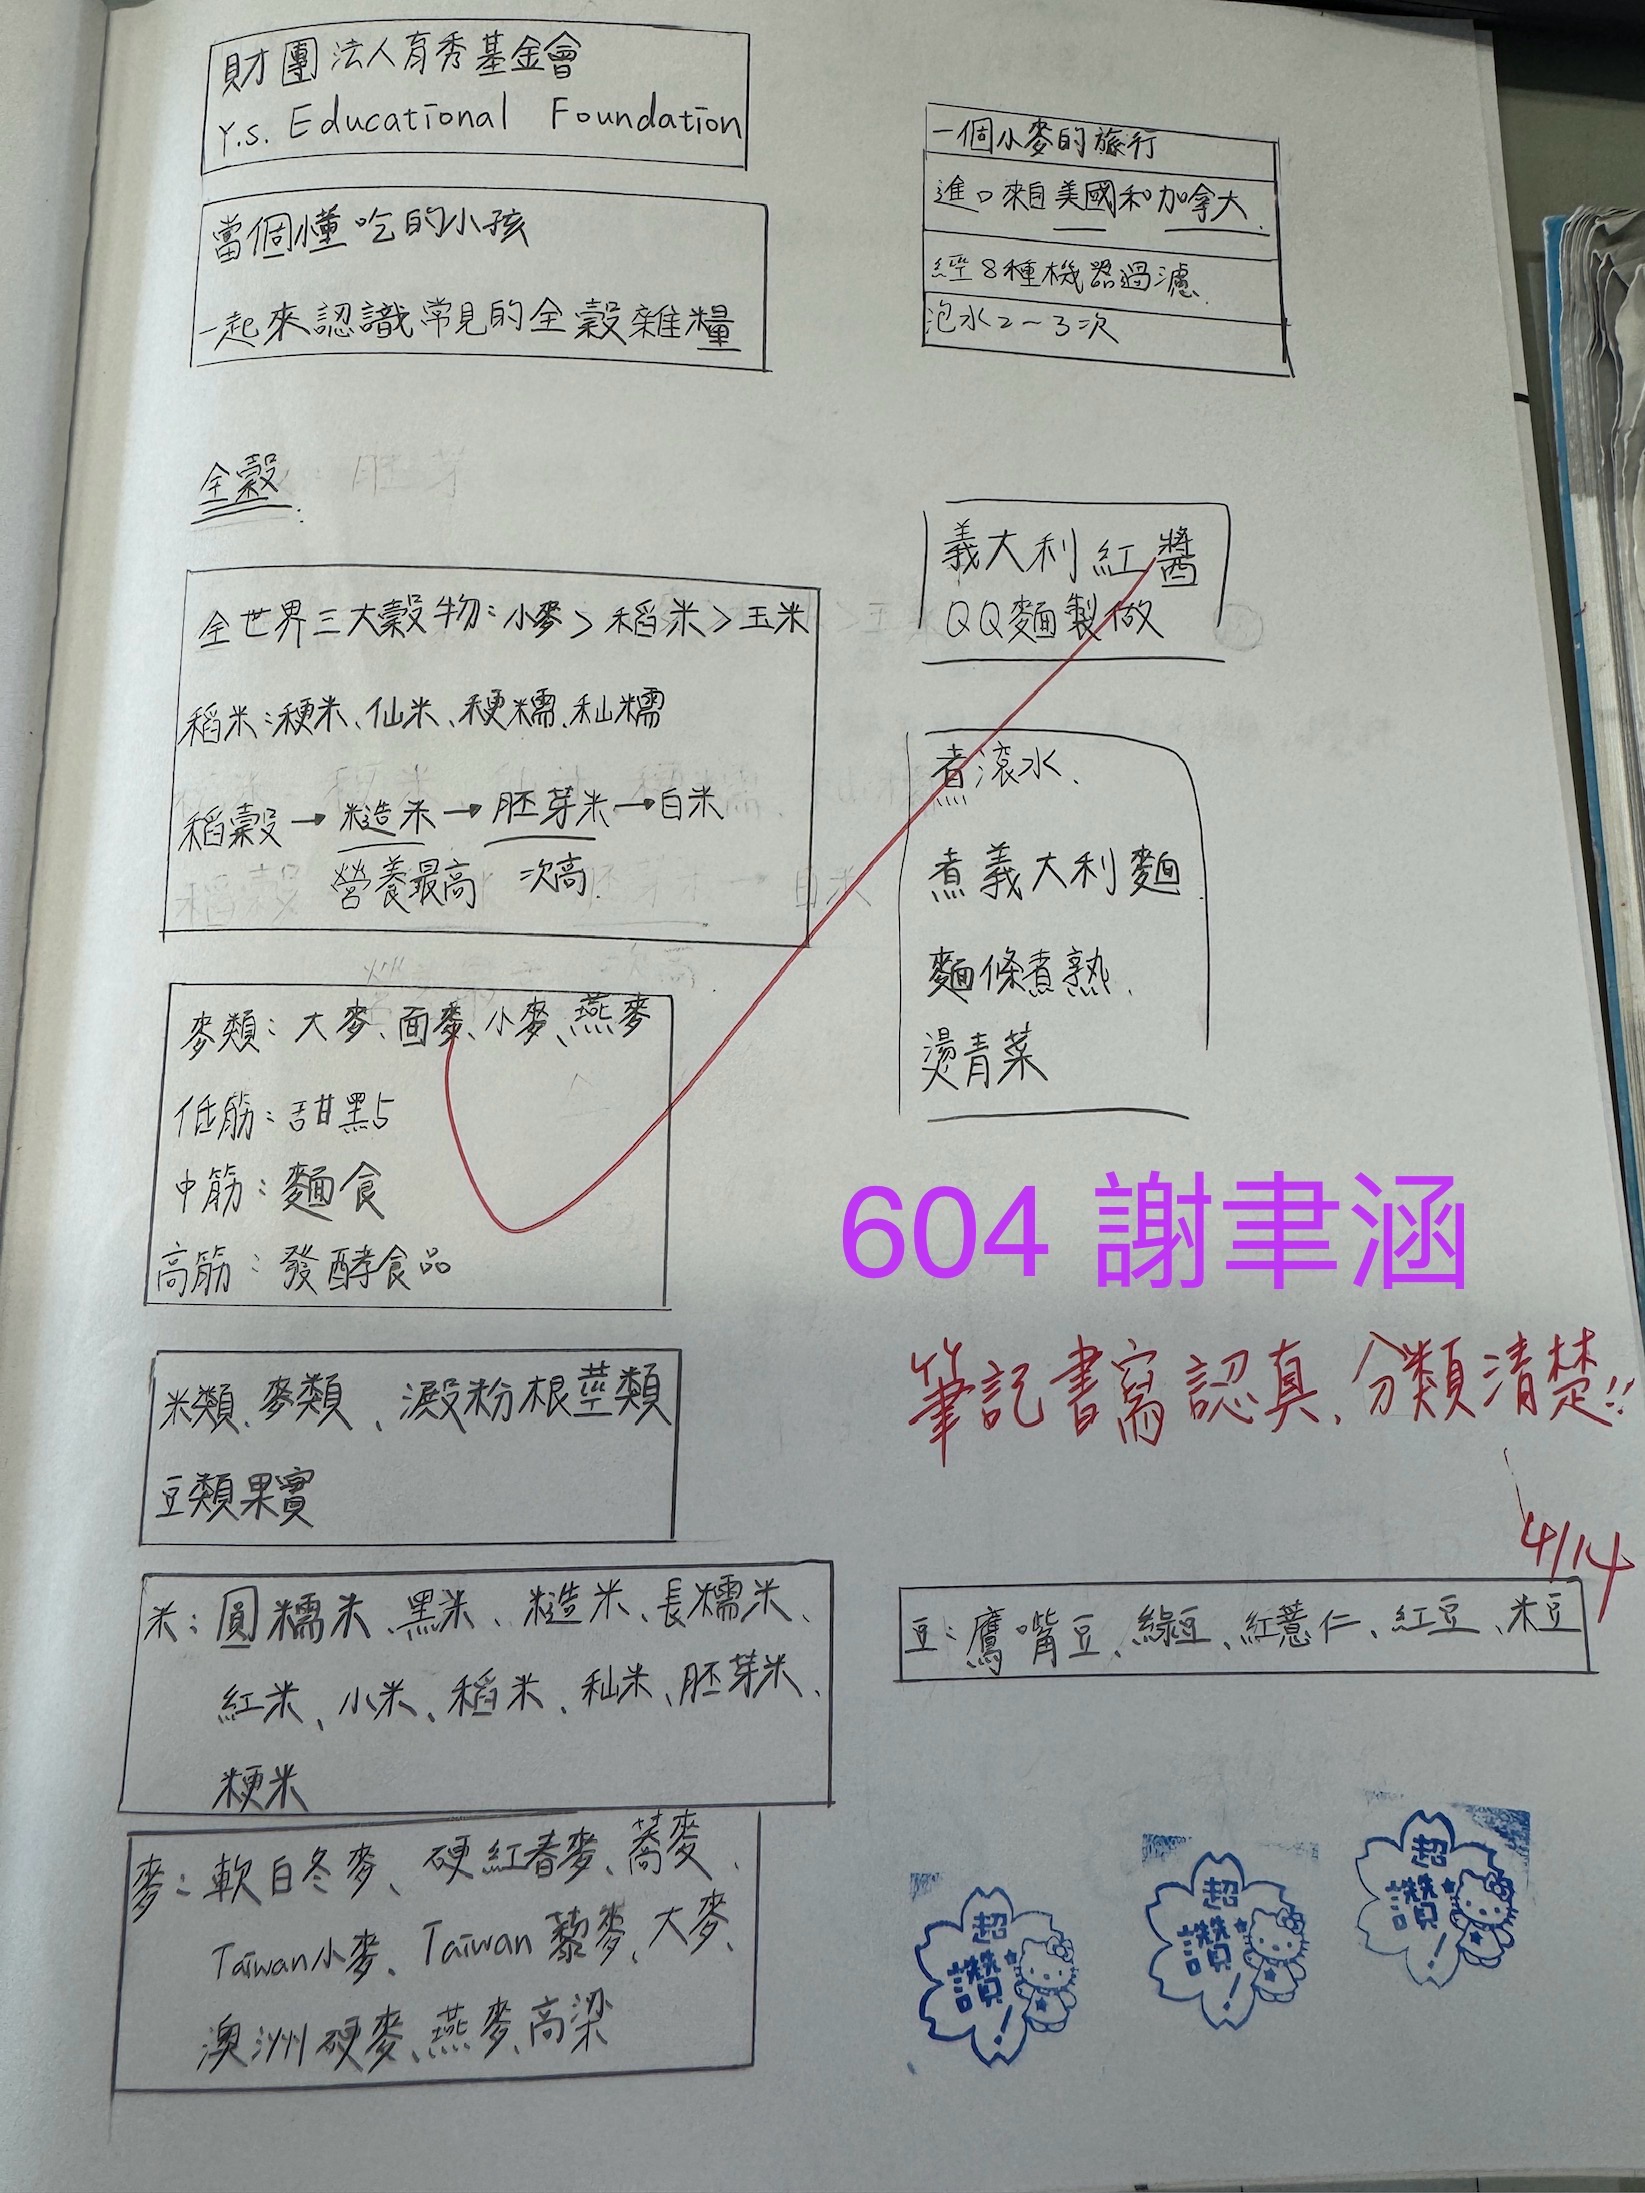 財團法人育秀基金會
Y.s. Educational Foundation
當個懂吃的小孩
一起來認識常見的全穀雜糧
全穀
全世界三大穀物:小麥>稻米>玉米
稻米:稉米、仙米、稉糯、秈糯
稻穀→糙米→胚芽米→白米
營養最高 次高
麥類:大麥、面麥、小麥、燕麥
低筋:甜點
中筋:麵食
高筋:發酵食品
米類、麥類、澱粉根莖類
豆類果實
米:圓糯米、黑米、糙米、長糯米、
紅米、小米、稻米、秈米、胚芽米、
粳米
麥:軟白冬麥、硬紅春麥、蕎麥、
Taiwan小麥、Taiwan藜麥、大麥、
澳洲硬麥、燕麥、高梁
一個小麥的旅行
進口來自美國和加拿大
經8種機器過濾
泡水2~3次
義大利紅醬
QQ麵製做
煮滾水、
煮義大利麵
麵條煮熟、
燙青菜
604 謝聿涵
筆記書寫認真,分類清楚!!
4/14
豆:鷹嘴豆、綠豆、紅薏仁、紅豆、米豆
超讚!
超讚!
超讚!